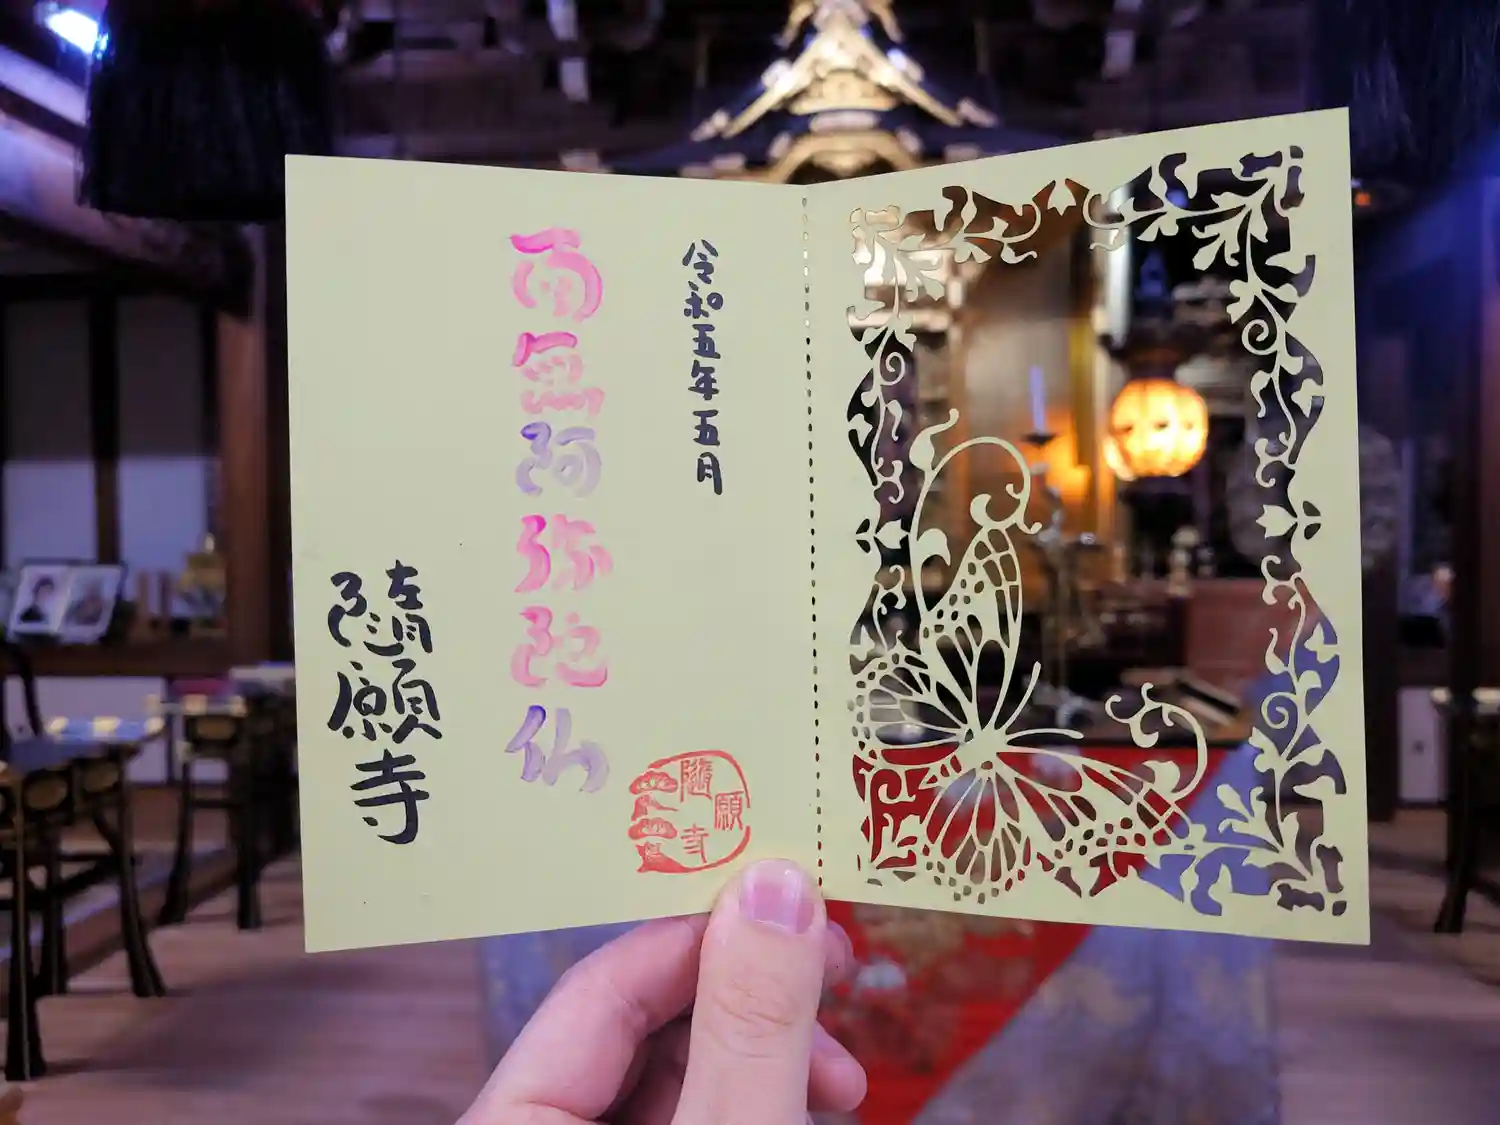 令和五年五月
南無阿弥陀仏
隨願寺
隨願寺